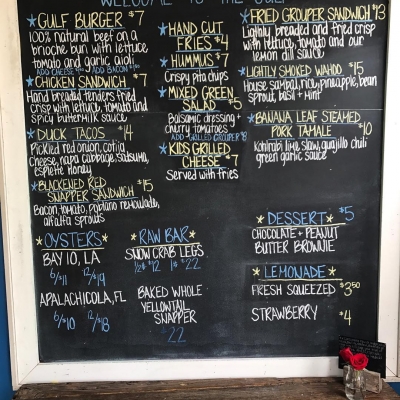 WELCOME TO THE GULF
GULF BURGER $7
100% natural beef on a
brioche bun with lettuce
tomato and garlic aioli
ADD CHEESE ADD BACON
CHICKEN SANDWICH $7
Hand breaded tenders fried
crisp with lettuce, tomato and
spicy buttermilk sauce
DUCK TACOS $14
Pickled red onion, cotija
cheese, napa cabbage, satsuma,
esplette honey
BLACKENED RED
SNAPPER SANDWICH $15
Bacon, tomato, poblano remoulade,
alfalfa sprouts
OYSTERS
BAY 10, LA
6/$11 12/$19
APALACHICOLA, FL
6/$10 12/$18
HAND CUT
FRIES $4
HUMMUS $7
Crispy pita chips
MIXED GREEN
SALAD $5
Balsamic dressing +
cherry tomatoes
ADD GRILLED GROUPER $8
KIDS GRILLED
CHEESE $7
Served with fries
RAW BAR
SNOW CRAB LEGS
1/2# $12 1# $22
BAKED WHOLE
YELLOWTAIL
SNAPPER
22
FRIED GROUPER SANDWICH $13
Lightly breaded and fried crisp
with lettuce, tomato and our
lemon dill sauce
LIGHTLY SMOKED WAHOO $15
House sambal, rice, pineapple, bean
sprout, basil + mint
BANANA LEAF STEAMED
PORK TAMALE $10
Kohlrabi lime slaw, guajillo chili
green garlic sauce
DESSERT $5
CHOCOLATE + PEANUT
BUTTER BROWNIE
LEMONADE
FRESH SQUEEZED $3.50
STRAWBERRY $4